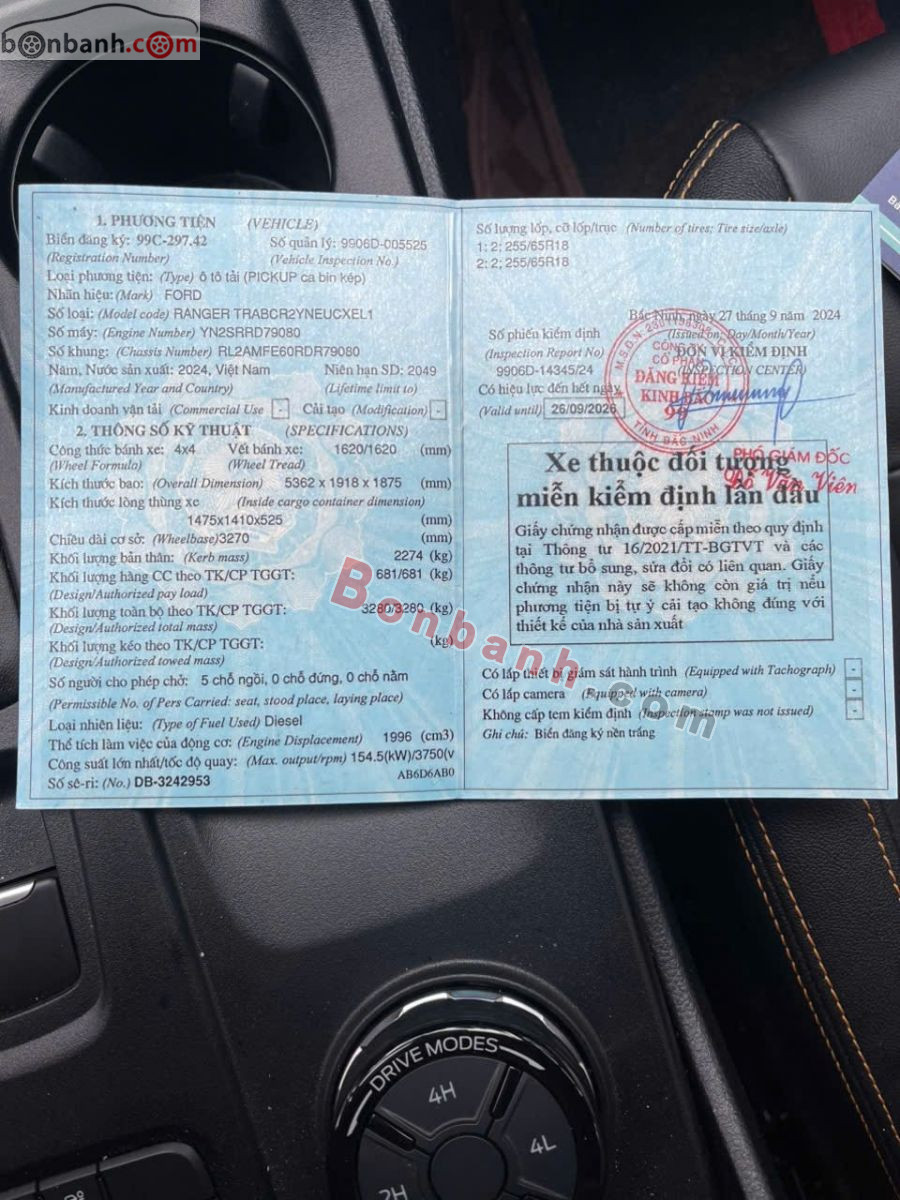 bonbanh.com
1. PHƯƠNG TIỆN (VEHICLE)
Biển đăng ký: 99C-297.42 Số quản lý: 9906D-005525
(Registration Number) (Vehicle Inspection No.)
Loại phương tiện: (Type) ô tô tải (PICKUP ca bin kép)
Nhãn hiệu: (Mark) FORD
Số loại: (Model code) RANGER TRABCR2YNEUCXEL1
Số máy: (Engine Number) YN2SRRD79080
Số khung: (Chassis Number) RL2AMFE60RDR79080
Năm, Nước sản xuất: 2024, Việt Nam Niên hạn SD: 2049
(Manufactured Year and Country) (Lifetime limit to)
Kinh doanh vận tải (Commercial Use - Cải tạo (Modification) -
2. THÔNG SỐ KỸ THUẬT (SPECIFICATIONS)
Công thức bánh xe: 4x4 Vết bánh xe: 1620/1620 (mm)
(Wheel Formula) (Wheel Tread)
Kích thước bao: (Overall Dimension) 5362 x 1918 x 1875 (mm)
Kích thước lòng thùng xe (Inside cargo container dimension)
1475x1410x525 (mm)
Chiều dài cơ sở: (Wheelbase)3270 (mm)
Khối lượng bản thân: (Kerb mass) 2274 (kg)
Khối lượng hàng CC theo TK/CP TGGT: 681/681 (kg)
(Design/Authorized pay load)
Khối lượng toàn bộ theo TK/CP TGGT: 3280/3280 (kg)
(Design/Authorized total mass)
Khối lượng kéo theo TK/CP TGGT: (kg)
(Design/Authorized towed mass)
Số người cho phép chở: 5 chỗ ngồi, 0 chỗ đứng, 0 chỗ nằm
(Permissible No. of Pers Carried: seat, stood place, laying place)
Loại nhiên liệu: (Type of Fuel Used) Diesel
Thể tích làm việc của động cơ: (Engine Displacement) 1996 (cm3)
Công suất lớn nhất/tốc độ quay: (Max. output/rpm) 154.5(kW)/3750(v
AB6D6AB0
Số sê-ri: (No.) DB-3242953
Số lượng lốp, cỡ lốp/trục (Number of tires; Tire size/axle)
1: 2; 255/65R18
2: 2; 255/65R18
Bắc Ninh, ngày 27 tháng 9 năm 2024
Số phiếu kiểm định (Issued on: Day/Month/Year)
(Inspection Report No) ĐƠN VỊ KIỂM ĐỊNH
9906D-14345/24 (INSPECTION CENTER)
Có hiệu lực đến hết ngày
(Valid until) 26/09/2026
CÔNG TY
CỔ PHẦN
ĐĂNG KIỂM
KINH BẮC
99
TỈNH BẮC NINH
PHÓ GIÁM ĐỐC
Đỗ Văn Viên
Xe thuộc đối tượng
miễn kiểm định lần đầu
Giấy chứng nhận được cấp miễn theo quy định
tại Thông tư 16/2021/TT-BGTVT và các
thông tư bổ sung, sửa đổi có liên quan. Giấy
chứng nhận này sẽ không còn giá trị nếu
phương tiện bị tự ý cải tạo không đúng với
thiết kế của nhà sản xuất
Có lắp thiết bị giám sát hành trình (Equipped with Tachograph) -
Có lắp camera (Equipped with camera) -
Không cấp tem kiểm định (Inspection stamp was not issued) -
Ghi chú: Biển đăng ký nền trắng
Bonbanh.com
DRIVE MODES
4H
4L
2H